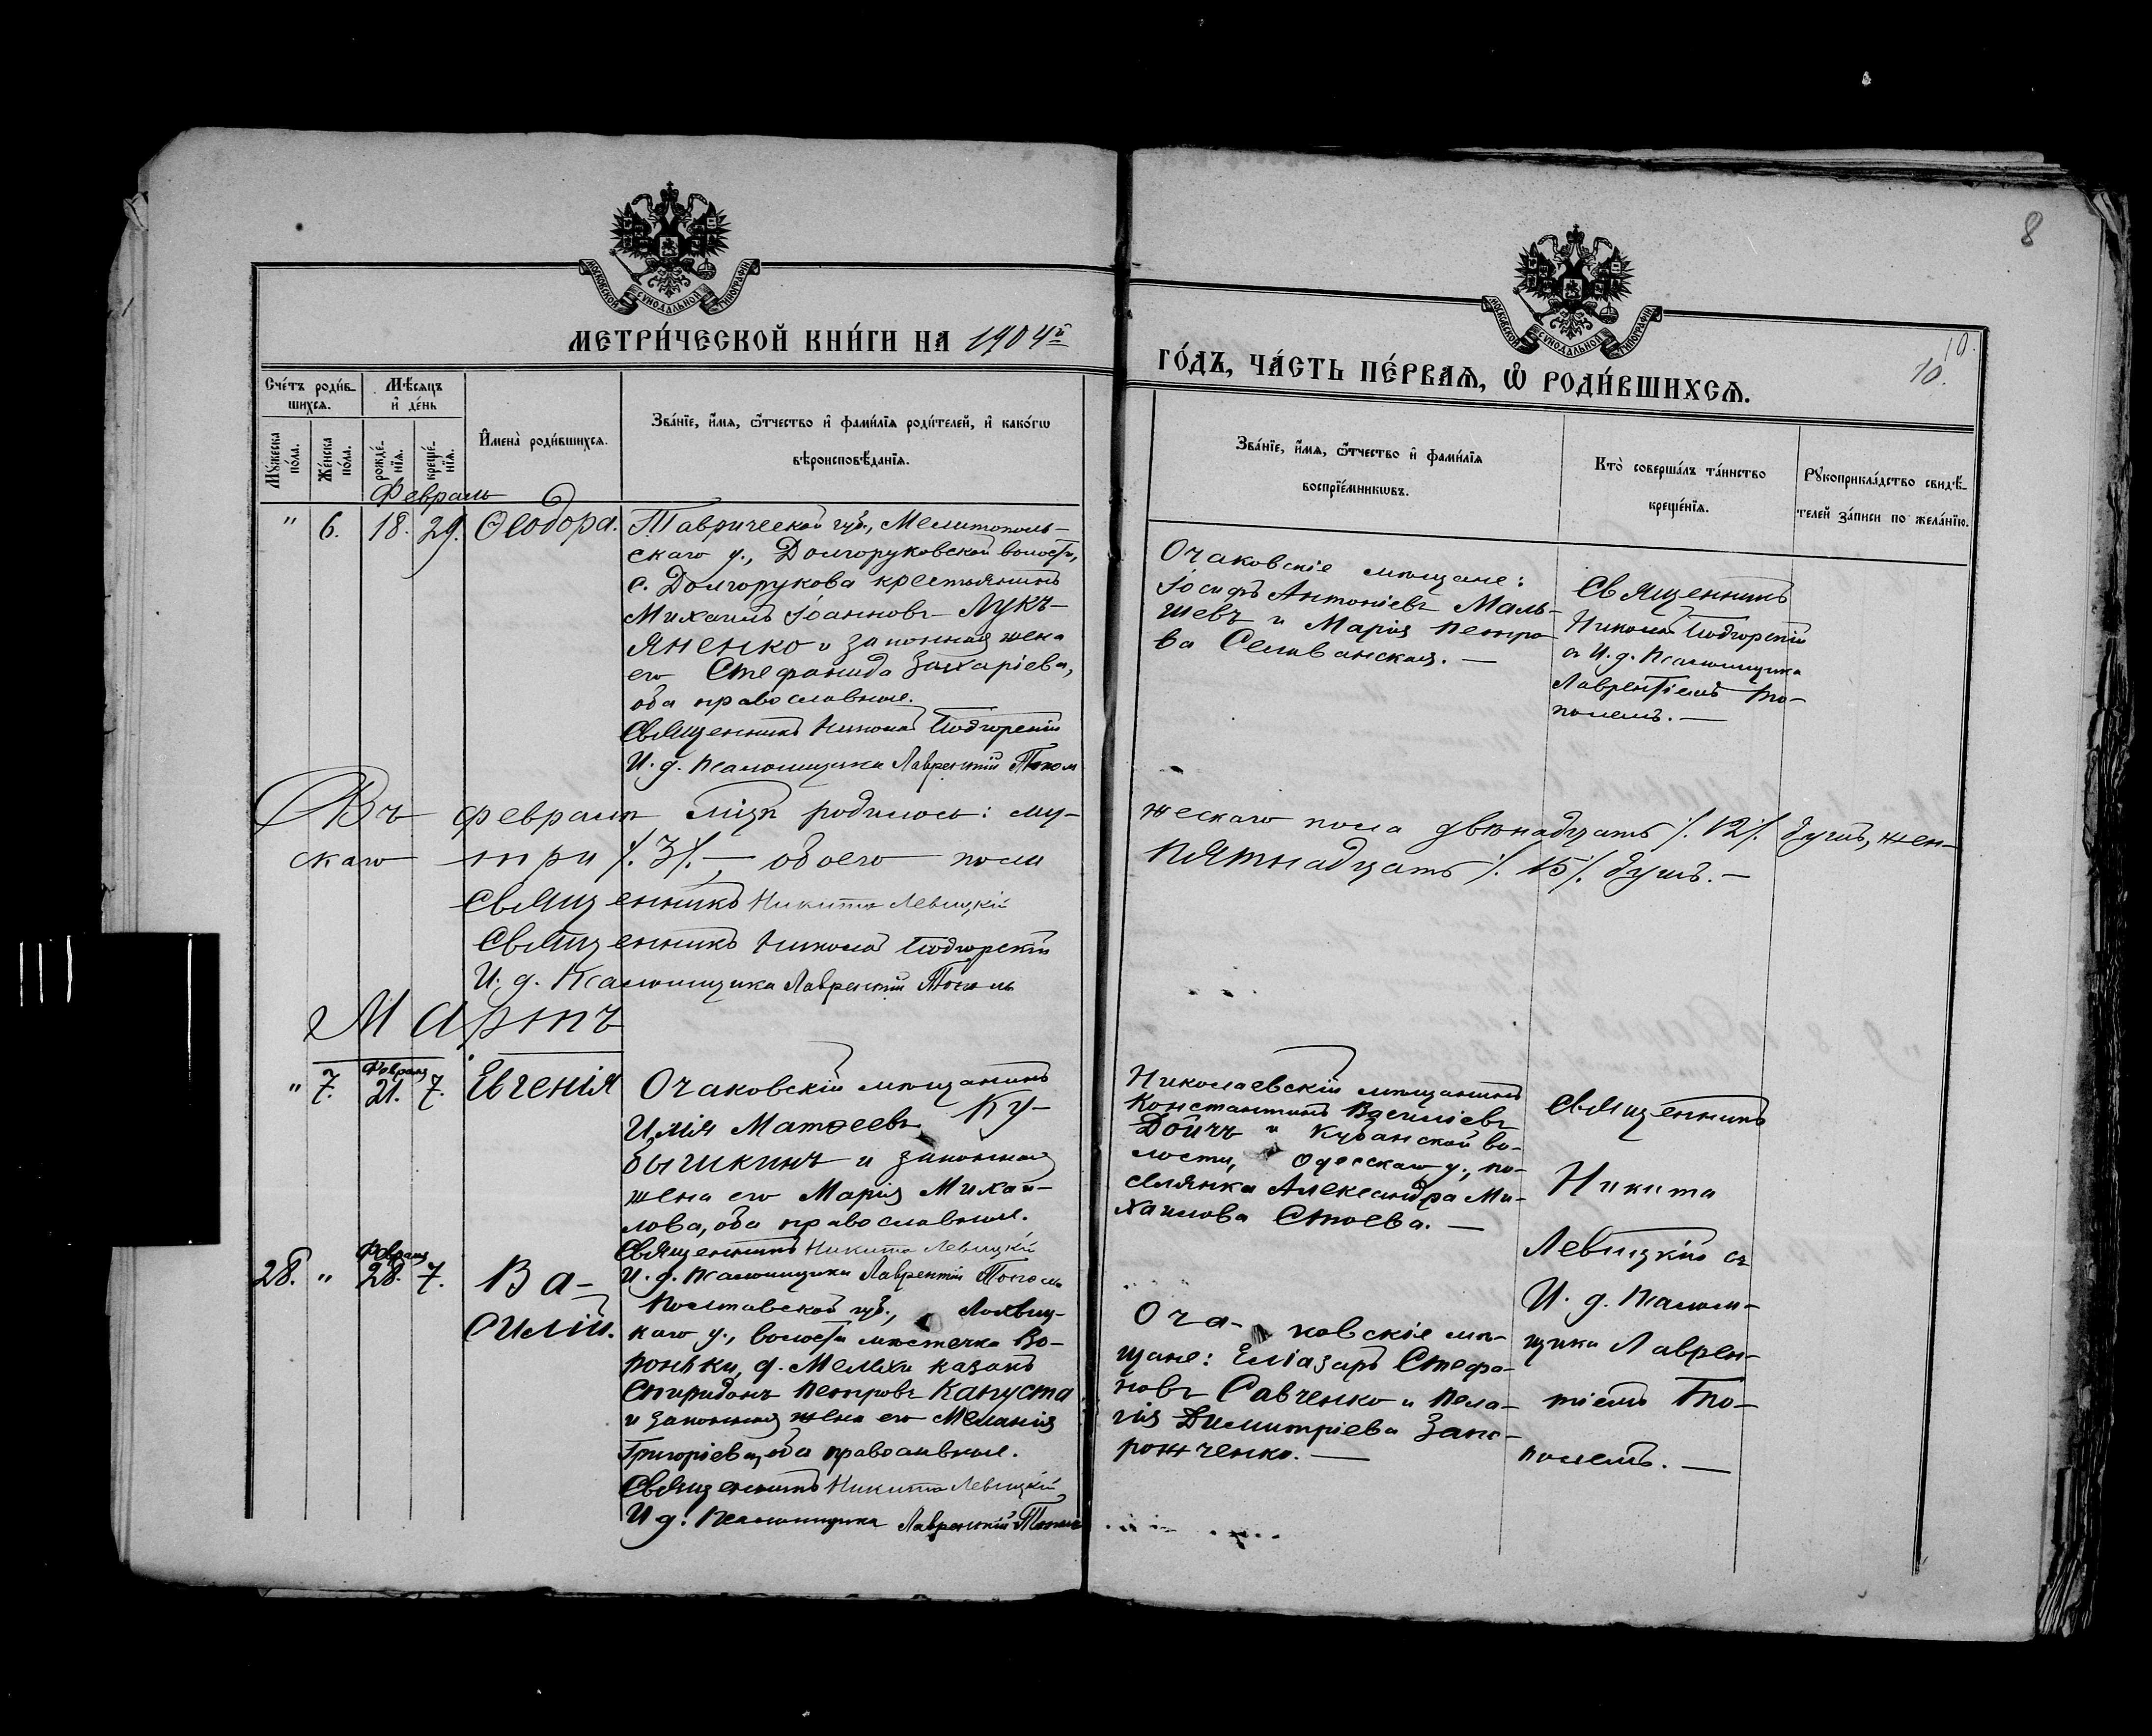 8
МОСКОВСКОЙ СѴНОДАЛЬНОЙ ТИПОГРАФІИ
МОСКОВСКОЙ СѴНОДАЛЬНОЙ ТИПОГРАФІИ
МЕТРИ́ЧЕСКОЙ КНИ́ГИ НА 1904й
ГО́ДЪ, ЧА́СТЬ ПЕ́РВАѦ, Ѡ҆ РОДИ́ВШИХСѦ.
10.
10.
Сче́тъ роди́в-
шихсѧ.
Мѣ́сѧцъ
и҆ де́нь
Мꙋ́жеска
по́ла.
Же́нска
по́ла.
рожде́-
нїѧ.
креще́-
нїѧ.
И҆мена̀ роди́вшихсѧ.
Зва́нїе, и҆́мѧ, ѻ҆́тчество и҆ фами́лїѧ роди́телей, и҆ како́гѡ
вѣроисповѣ́данїѧ.
Зва́нїе, и҆́мѧ, ѻ҆́тчество и҆ фами́лїѧ
воспрїе́мникѡвъ.
Кто̀ соверша́лъ та́инство
креще́нїѧ.
Рꙋкоприкла́дство свидѣ́-
телей за́писи по жела́нїю.
Февраль
" 6. 18. 29. Ѳеодора.
Таврической губ., Мелитополь-
скаго у., Долгоруковской волости,
с. Долгорукова крестьянинъ
Михаилъ Іоанновъ Лукъ-
яненко и законная жена
его Стефанида Захаріева,
оба православные.
Священникъ Николай Подгорскій
И. д. Псаломщика Лаврентій Тополь
Очаковскіе мѣщане:
Іосифъ Антоніевъ Маль-
шевъ и Марія Петро-
ва Селиванская. —
Священникъ
Николай Подгорскій
съ И. д. Псаломщика
Лаврентіемъ То-
полемъ. —
Въ февралѣ м-цѣ родилось: му-
жескаго пола двѣнадцать ⁒ 12 ⁒ душъ, жен-
скаго три ⁒ 3 ⁒, — обоего пола
пятнадцать ⁒ 15 ⁒ душъ. —
Священникъ Никита Левицкій
Священникъ Николай Подгорскій
И. д. Псаломщика Лаврентій Тополь
Мартъ
" 7. Февраля 21. 7. Евгенія
Очаковскій мѣщанинъ
Илія Матѳеевъ Ку-
бышкинъ и законная
жена его Марія Михаи-
лова, оба православные.
Священникъ Никита Левицкій
И. д. Псаломщика Лаврентій Тополь
Николаевскій мѣщанинъ
Константинъ Василіевъ
Дойчъ и Кубанской во-
лости, Одесскаго у., по-
селянка Александра Ми-
хаилова Стоева. —
Священникъ
Никита
Левицкій съ
И. д. Псалом-
щика Лаврен-
тіемъ То-
полемъ. —
28. " Февраля 28. 7. Ва-
силій.
Полтавской губ., Лохвиц-
каго у., волости мѣстечка Во-
роньки, д. Мелехи казакъ
Спиридонъ Петровъ Капуста
и законная жена его Меланія
Григоріева, оба православные.
Священникъ Никита Левицкій
И д. Псаломщика Лаврентій Тополь
Оча- ковскіе мѣ-
щане: Еліазаръ Стефа-
новъ Савченко и Пела-
гія Димитріева Запо-
рожченко. —